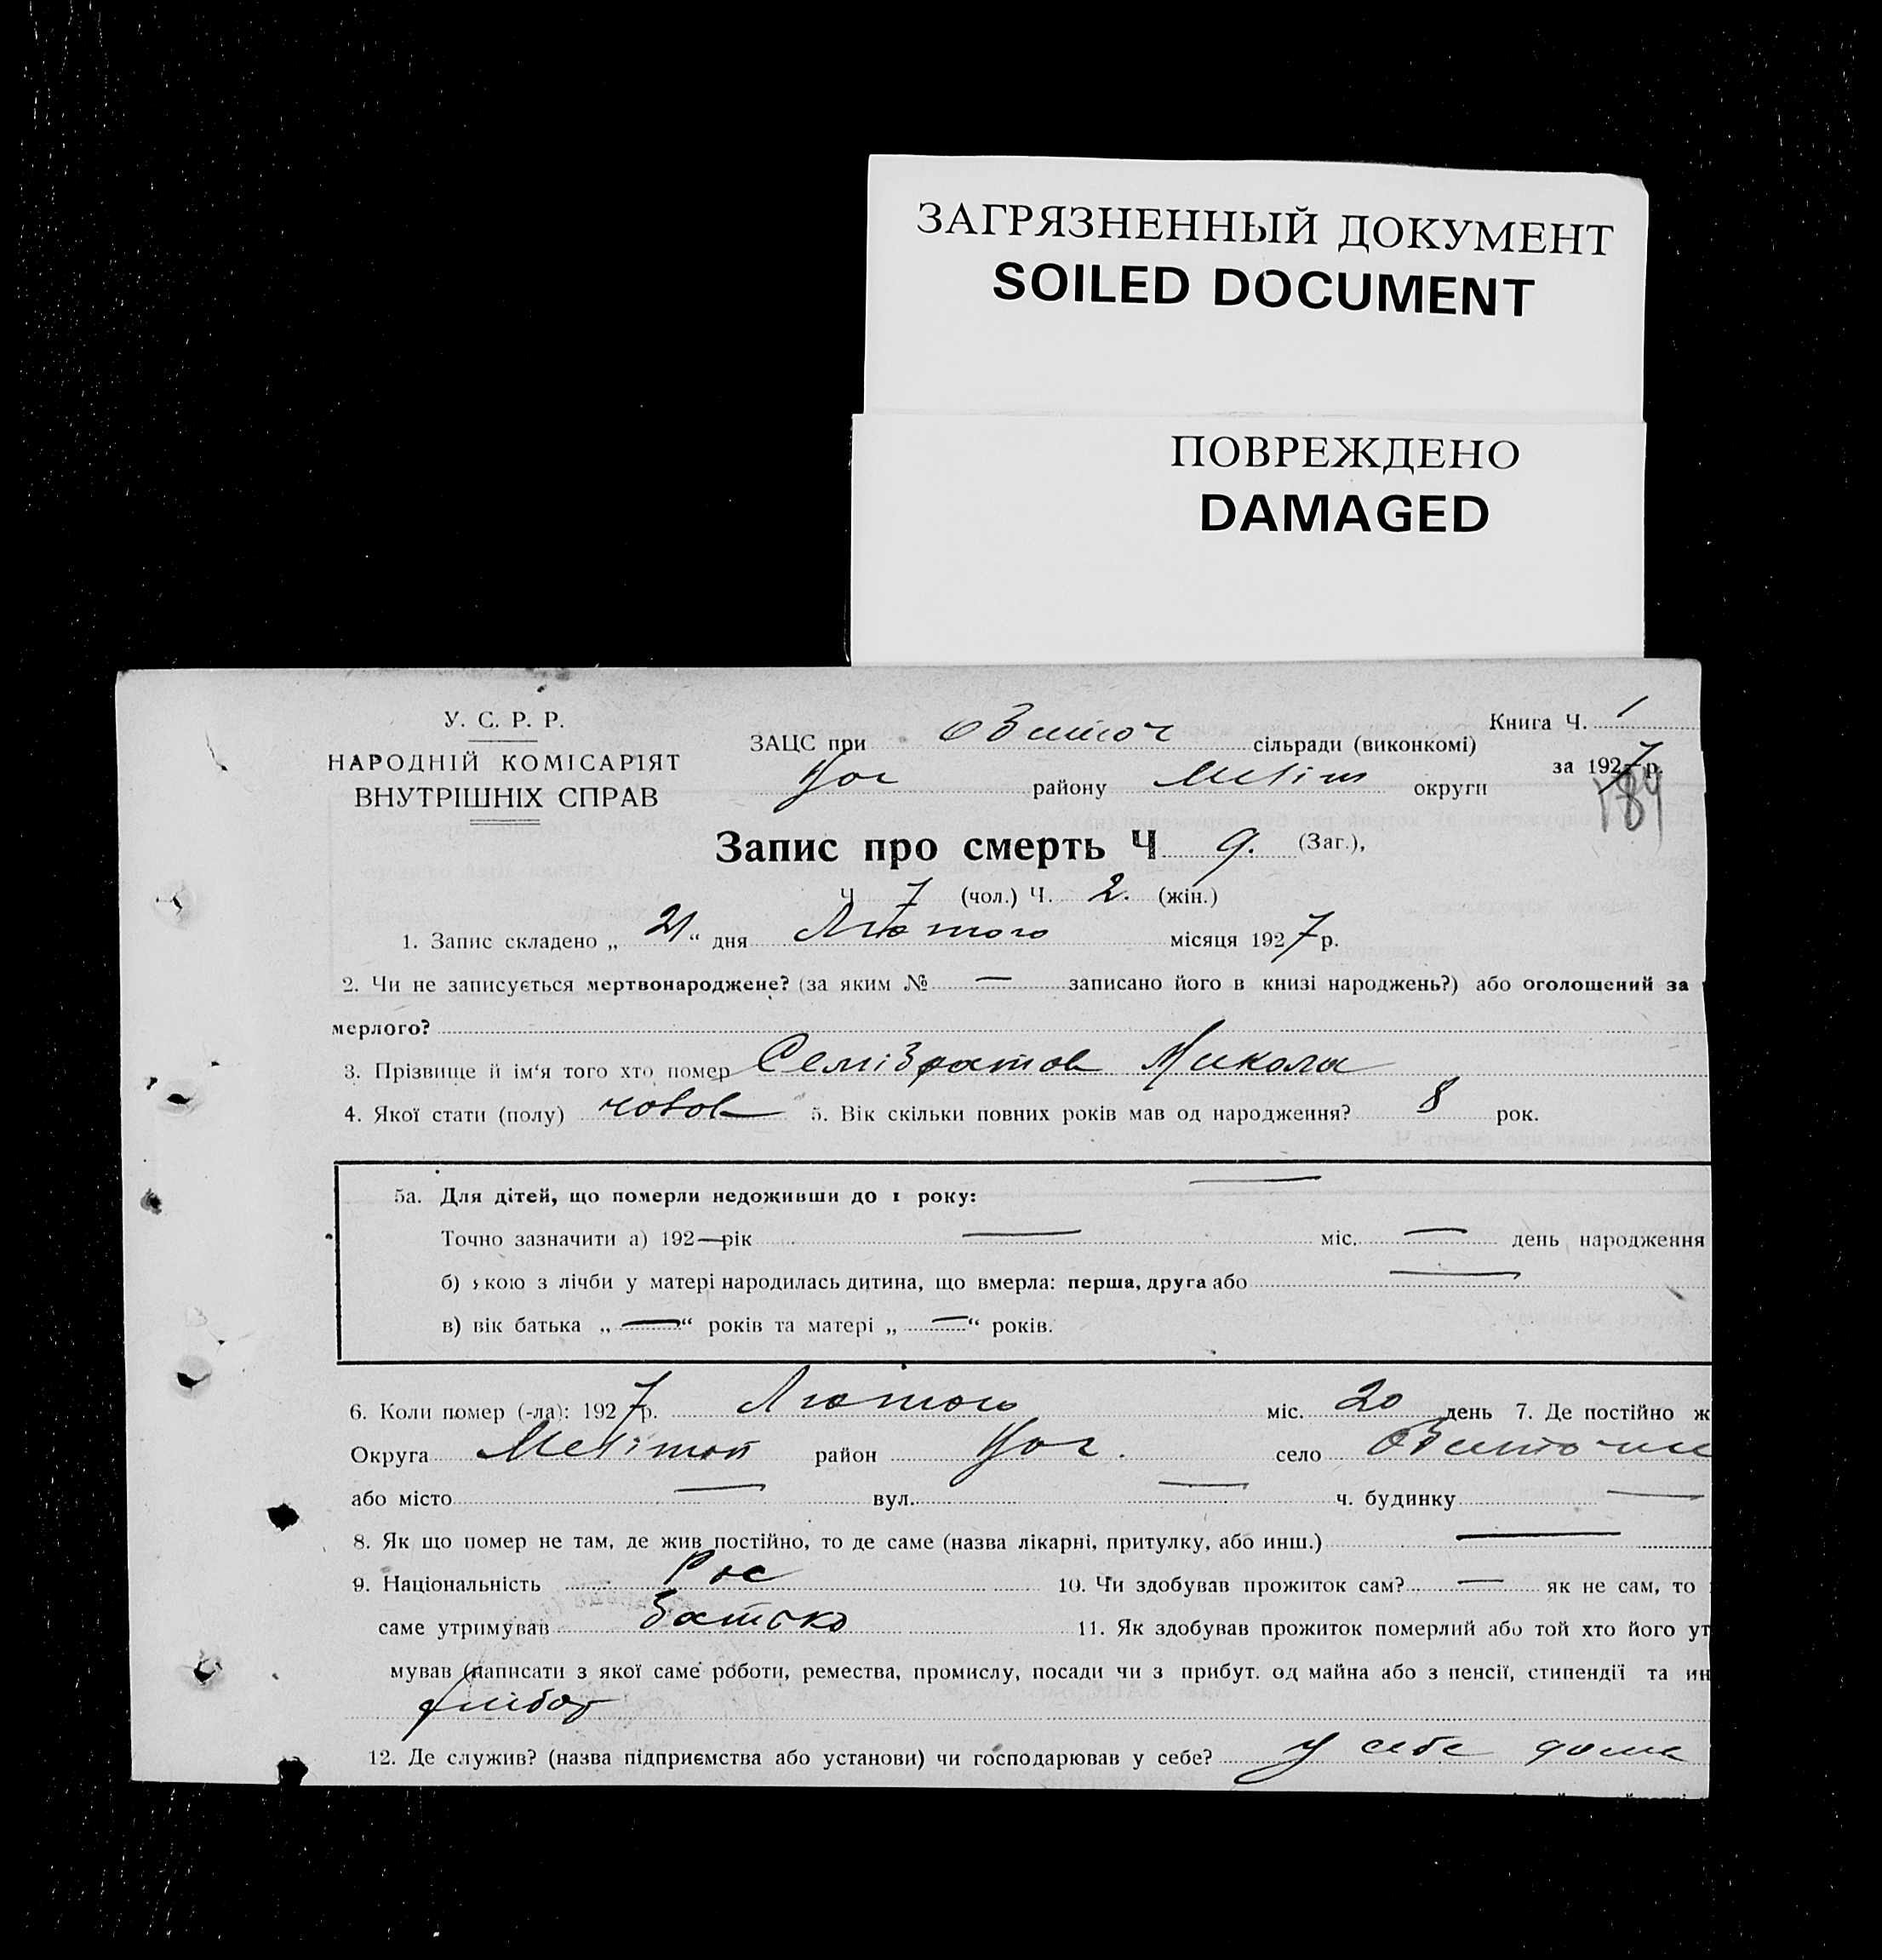 ЗАГРЯЗНЕННЫЙ ДОКУМЕНТ
SOILED DOCUMENT
ПОВРЕЖДЕНО
DAMAGED
У. С. Р. Р.
НАРОДНІЙ КОМІСАРІЯТ
ВНУТРІШНІХ СПРАВ
Книга Ч. 1
за 1927 р.
189
ЗАЦС при Обиточ сільради (виконкомі)
Ног району Меліт округи
Запис про смерть Ч 9. (Заг.),
Ч 7 (чол.) Ч. 2. (жін.)
1. Запис складено „ 21 “ дня Лютого місяця 1927 р.
2. Чи не записується мертвонароджене? (за яким № — записано його в книзі народжень?) або оголошений за
мерлого?
3. Прізвище й ім‘я того хто помер Семібратов Микола
4. Якої стати (полу) чолов 5. Вік скільки повних років мав од народження? 8 рок.
5а. Для дітей, що померли недоживши до 1 року: —
Точно зазначити а) 192— рік — міс. — день народження
б) якою з лічби у матері народилась дитина, що вмерла: перша, друга або —
в) вік батька „ — “ років та матері „ — “ років.
6. Коли помер (-ла): 1927 р. Лютого міс. 20 день 7. Де постійно ж
Округа Мелітоп район Ног. село Обиточн
або місто — вул. — ч. будинку —
8. Як що помер не там, де жив постійно, то де саме (назва лікарні, притулку, або инш.) —
9. Національність Рос 10. Чи здобував прожиток сам? — як не сам, то
саме утримував батько 11. Як здобував прожиток померлий або той хто його ут
мував (написати з якої саме роботи, ремества, промислу, посади чи з прибут. од майна або з пенсії, стипендії та ин
хлібор
12. Де служив? (назва підприємства або установи) чи господарював у себе? у себе дома